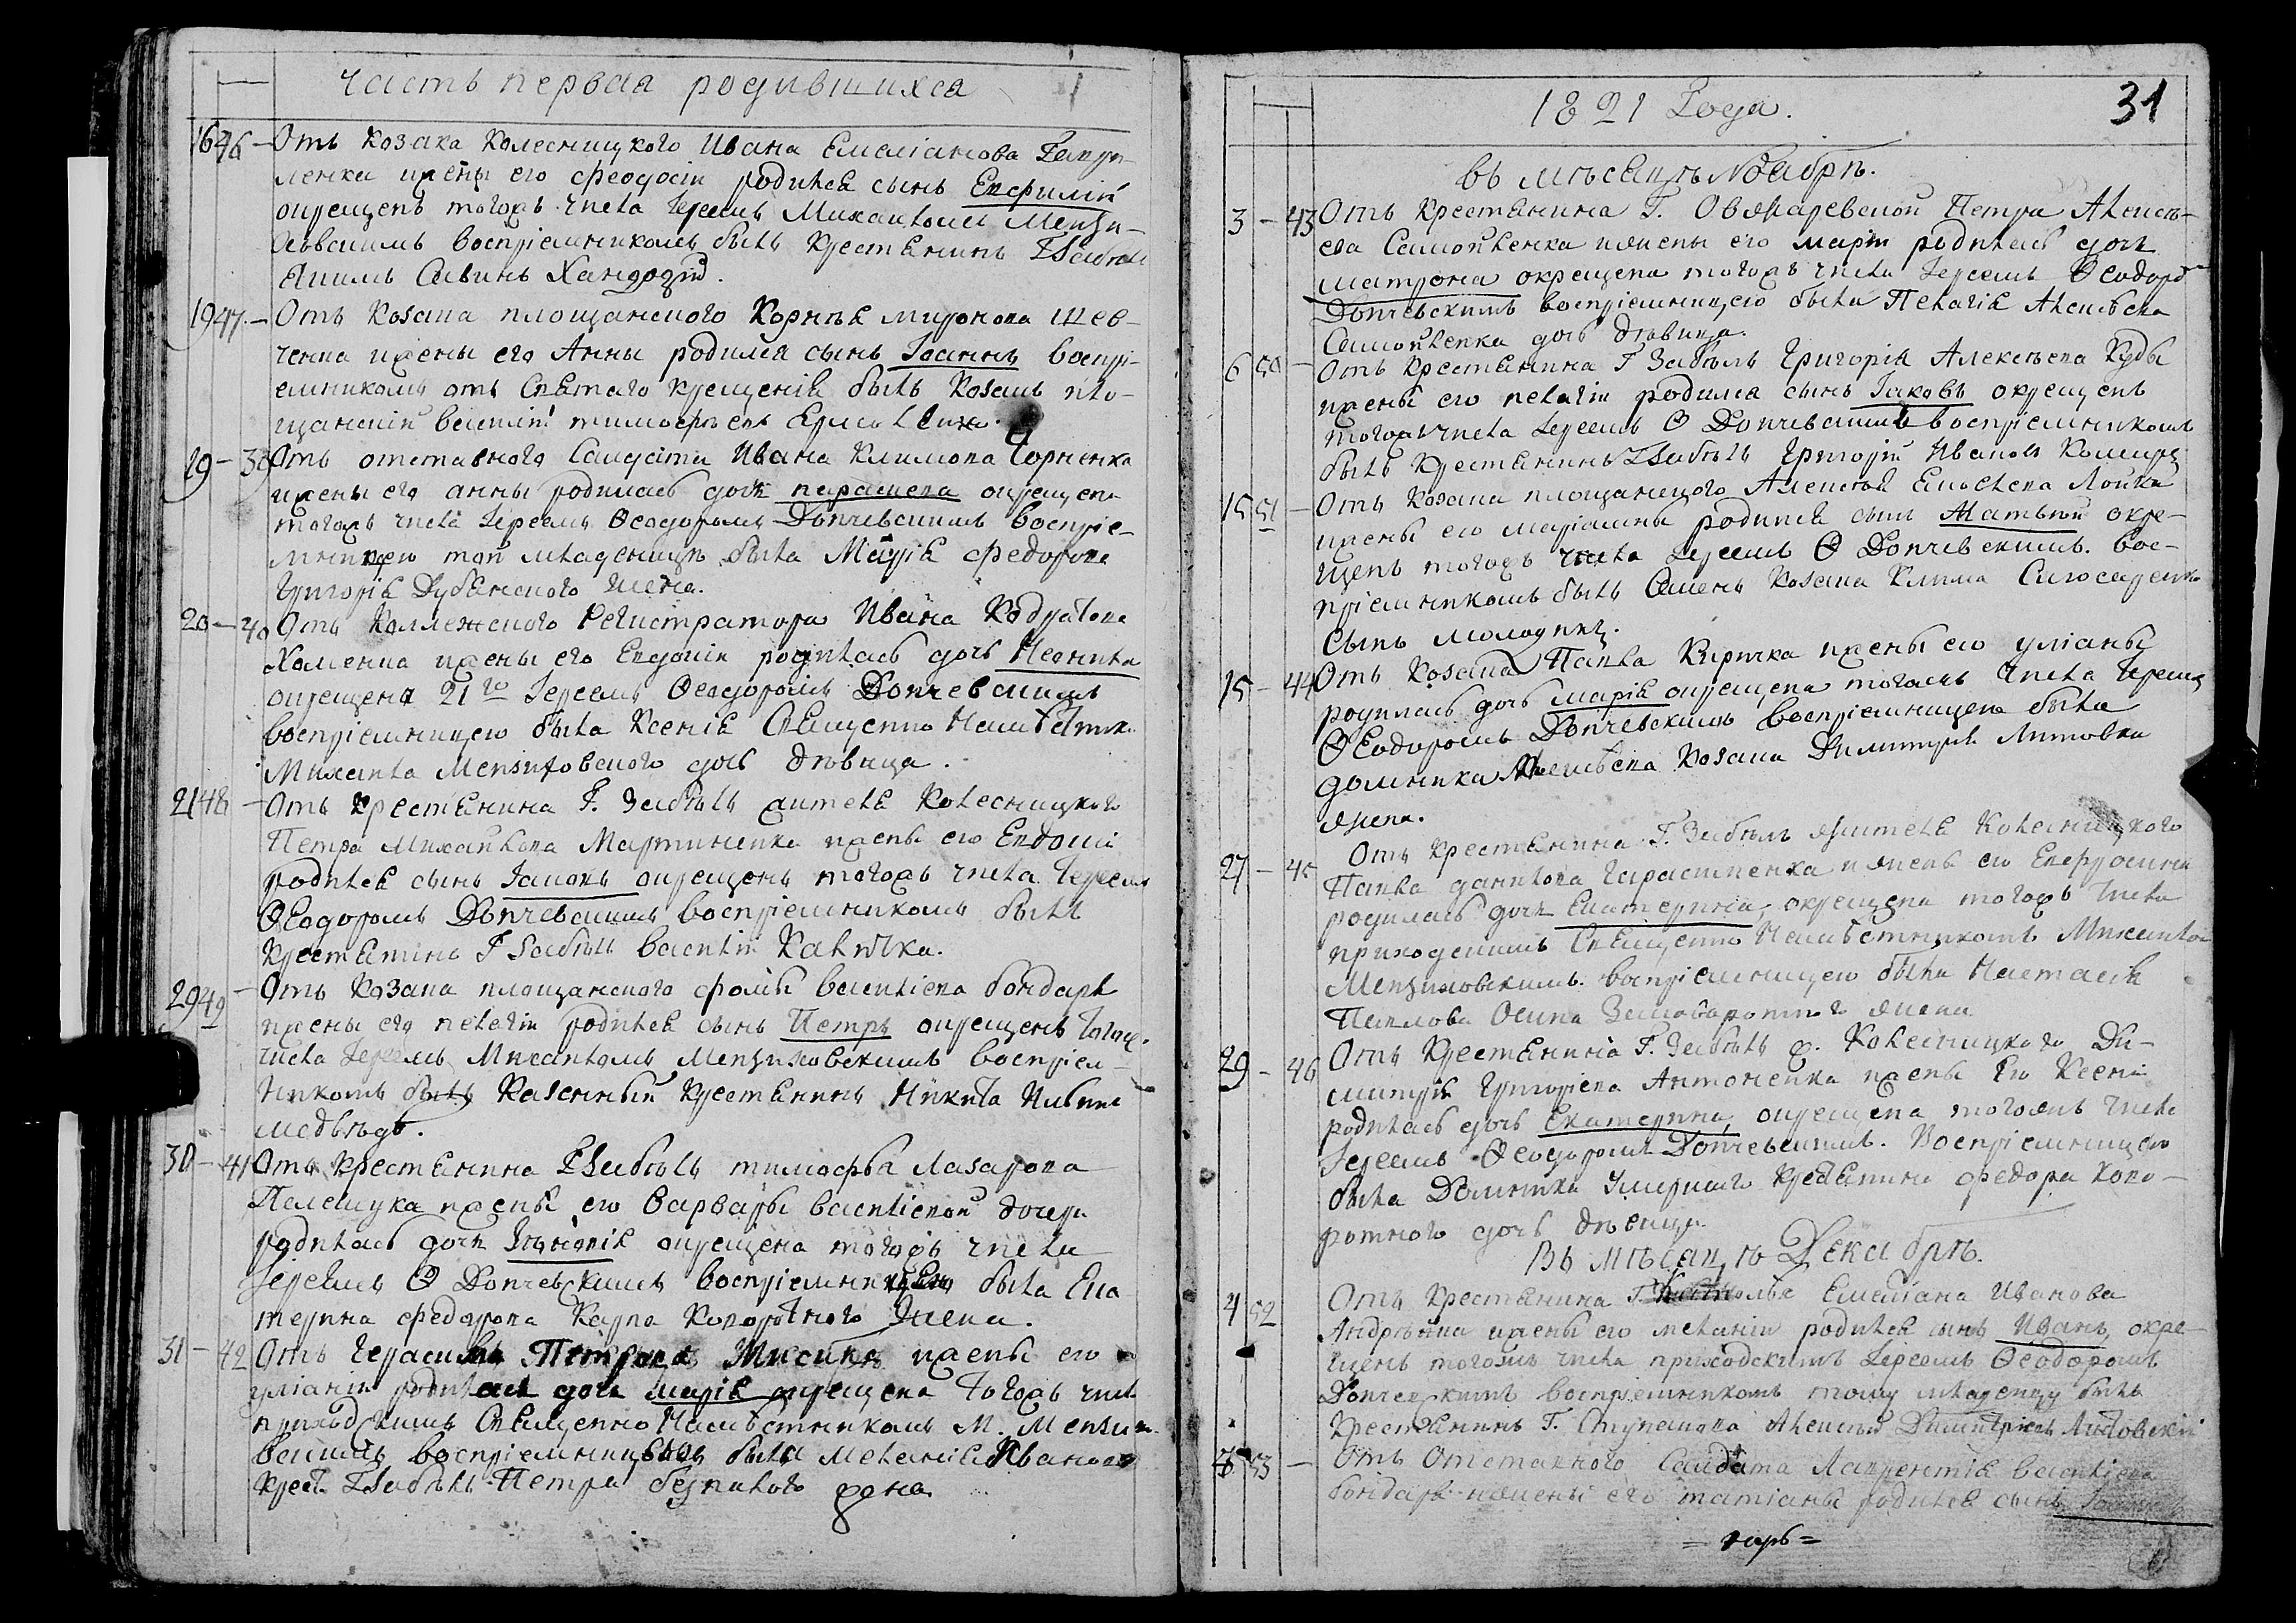 Часть первая родившихся
16 46 – Отъ Козака Колесницкого Ивана Емелiанова
ленка и жены его феодосiи родился сынъ Евфимiй
окрещенъ тогожъ числа Iереемъ Михаиломъ Менzи-
воспрiемникомъ былъ крестьянинъ Г Забѣлы
Якимъ Савинъ
19 47 – Отъ Козака площанского Корнѣя миронова Шев-
ченка и жены его Анны родился сынъ Iоаннъ воспрi-
емникомъ отъ Святаго крещенiя былъ Козакъ пло-
щанскiй василiй тимофѣевъ
29 – 39 Отъ отставного Салдата Ивана Климова Чорненка
и жены его анны родилась дочь параскева окрещена
тогожъ числа Iереемъ Ѳеодоромъ Допчевскимъ воспрiе-
мницею той младеницѣ была Марiя федорова
Григорiя Дубянского жена.
20 – 40 Отъ Коллежского Регистратора Ивана Кодратова
Хоменка и жены его Евдокiи родилась дочь Неонила
окрещена 21го Iереемъ Ѳеодоромъ Допчевскимъ
воспрiемницею была Ксенiя Священно Намѣстника
Михаила Мензиховского дочь дѣвица.
21 48 – Отъ крестьянина Г. Забѣлы жителя Колесницкого
Петра Михайлова Мартиненка и жены его Евдокiи
родился сынъ Iаковъ окрещенъ тогожъ числа Iереемъ
Ѳеодоромъ Допчевскимъ воспрiемникомъ былъ
крестьянинъ Г Забѣлы василiй
29 49 – Отъ Козака площанского фомы василiева бондаря
и жены его пелагiи родился сынъ Петръ окрещенъ тогожъ
числа Iереемъ Михаиломъ Мензиховскимъ воспрiем-
никомъ былъ Казенный крестьянинъ Никита
медвѣдь.
30 – 41 Отъ крестьянина Г Забѣлы тимофѣя Лазарова
Палещука и жены его Варвары василiевой дочери
родилась дочь окрещена тогожъ числа
Iереемъ Ѳ Допчевскимъ воспрiемницею была Ека
терина федорова Карпа Коворотного жена.
31 – 42 Отъ Герасима Петрова Мисика и жены его
улiанiи родилась дочь марiя окрещена тогожъ числа
приходскимъ Священно Намѣстникомъ М. Мензихо-
вскимъ воспрiемницею была меланiя Иванова
Крест. Г Забѣлы Петра жена
1821 Года. 31
въ мѣсяцѣ Ноябрѣ.
3 – 43 Отъ крестьянина Г. Овжаревской Петра Алексѣ-
ева Самойленка и жены его марiи родилась дочь
матрона окрещена тогожъ числа Iереемъ Ѳеодоро
Допчевскимъ воспрiемницею была Пелагiя Алексѣева
Самойленка дочь дѣвица.
6 50 – Отъ крестьянина Г Забѣлы Григорiя Алексѣева
и жены его пелагiи родился сынъ Iаковъ окрещенъ
тогожъ числа Iереемъ Ѳ Допчевскимъ воспрiемникомъ
былъ крестьянинъ Г Забѣлы Григорiй Ивановъ
15 51 – Отъ Козака площанского Алексѣя
и жены его марiанны родился сынъ Матвѣй окре-
щенъ тогожъ числа Iереемъ Ѳ Допчевскимъ. вос-
прiемникомъ былъ Семенъ Козака Клима
сынъ молодикъ.
15 – 44 Отъ Козака Павла Киричка и жены его улiаны
родилась дочь марiя окрещена тогожъ числа Iереемъ
Ѳеодоромъ Допчевскимъ воспрiемницею была
домника Алексѣева Козака Димитрiя Литовки
жена.
27 – 45 Отъ крестьянина Г. Забѣлы жителя Колесницкого
Павла данилова Гарастченка и жены его Евфросинiи
родилась дочь Екатерина, окрещена тогожъ числа
приходскимъ Священно Намѣстникомъ Михаиломъ
Мензиховскимъ. воспрiемницею была Настасiя
Павлова Осипа жена
29 – 46 Отъ крестьянина Г. Забѣлы ж. Колесницкого Ди-
митрiя Григорiева Антоненка и жены Его Ксенiи
родилась дочь Екатерина, окрещена тогожъ числа
Iереемъ Ѳеодоромъ Допчевскимъ. Воспрiемницею
была Домникiя умершаго крестьянина федораКово-
ротного дочь дѣвица.
Въ мѣсяцѣ Декабрѣ.
4 52 Отъ крестьянина Г. Емелiана Иванова
Андрѣйка и жены его меланiи родился сынъ Иванъ, окре-
щенъ тогожъ числа приходскимъ Iереемъ Ѳеодоромъ
Допчевскимъ воспрiемникомъ тому младенцу былъ
крестьянинъ Г. Ступакова Алексѣй Димитрiевъ Литовскiй
8 53 – Отъ Отставного Салдата Лаврентiя василiева
бондаря и жены его татiаны родился сынъ